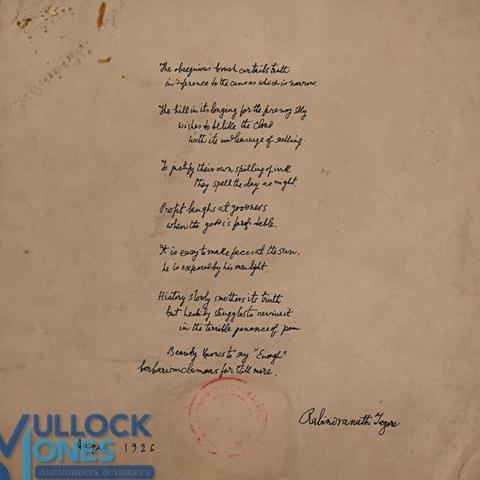 The obsequious brush curtails truth
in deference to the canvas which is narrow.
The hill in its longing for the far away sky
wishes to be like the cloud
with its endless urge of seeking.
To justify their own spilling of ink
They spell the day as night.
Profit laughs at goodness
when the good is profitable.
It is easy to make faces at the sun,
he is exposed by his own light.
History slowly smothers its truth
but hastily struggles to revive it
in the terrible penance of pain
Beauty knows to say "Enough"
barbarism clamours for still more.
Rabindranath Tagore
1926
MULLOCK
JONES
Auctioneers & Valuers